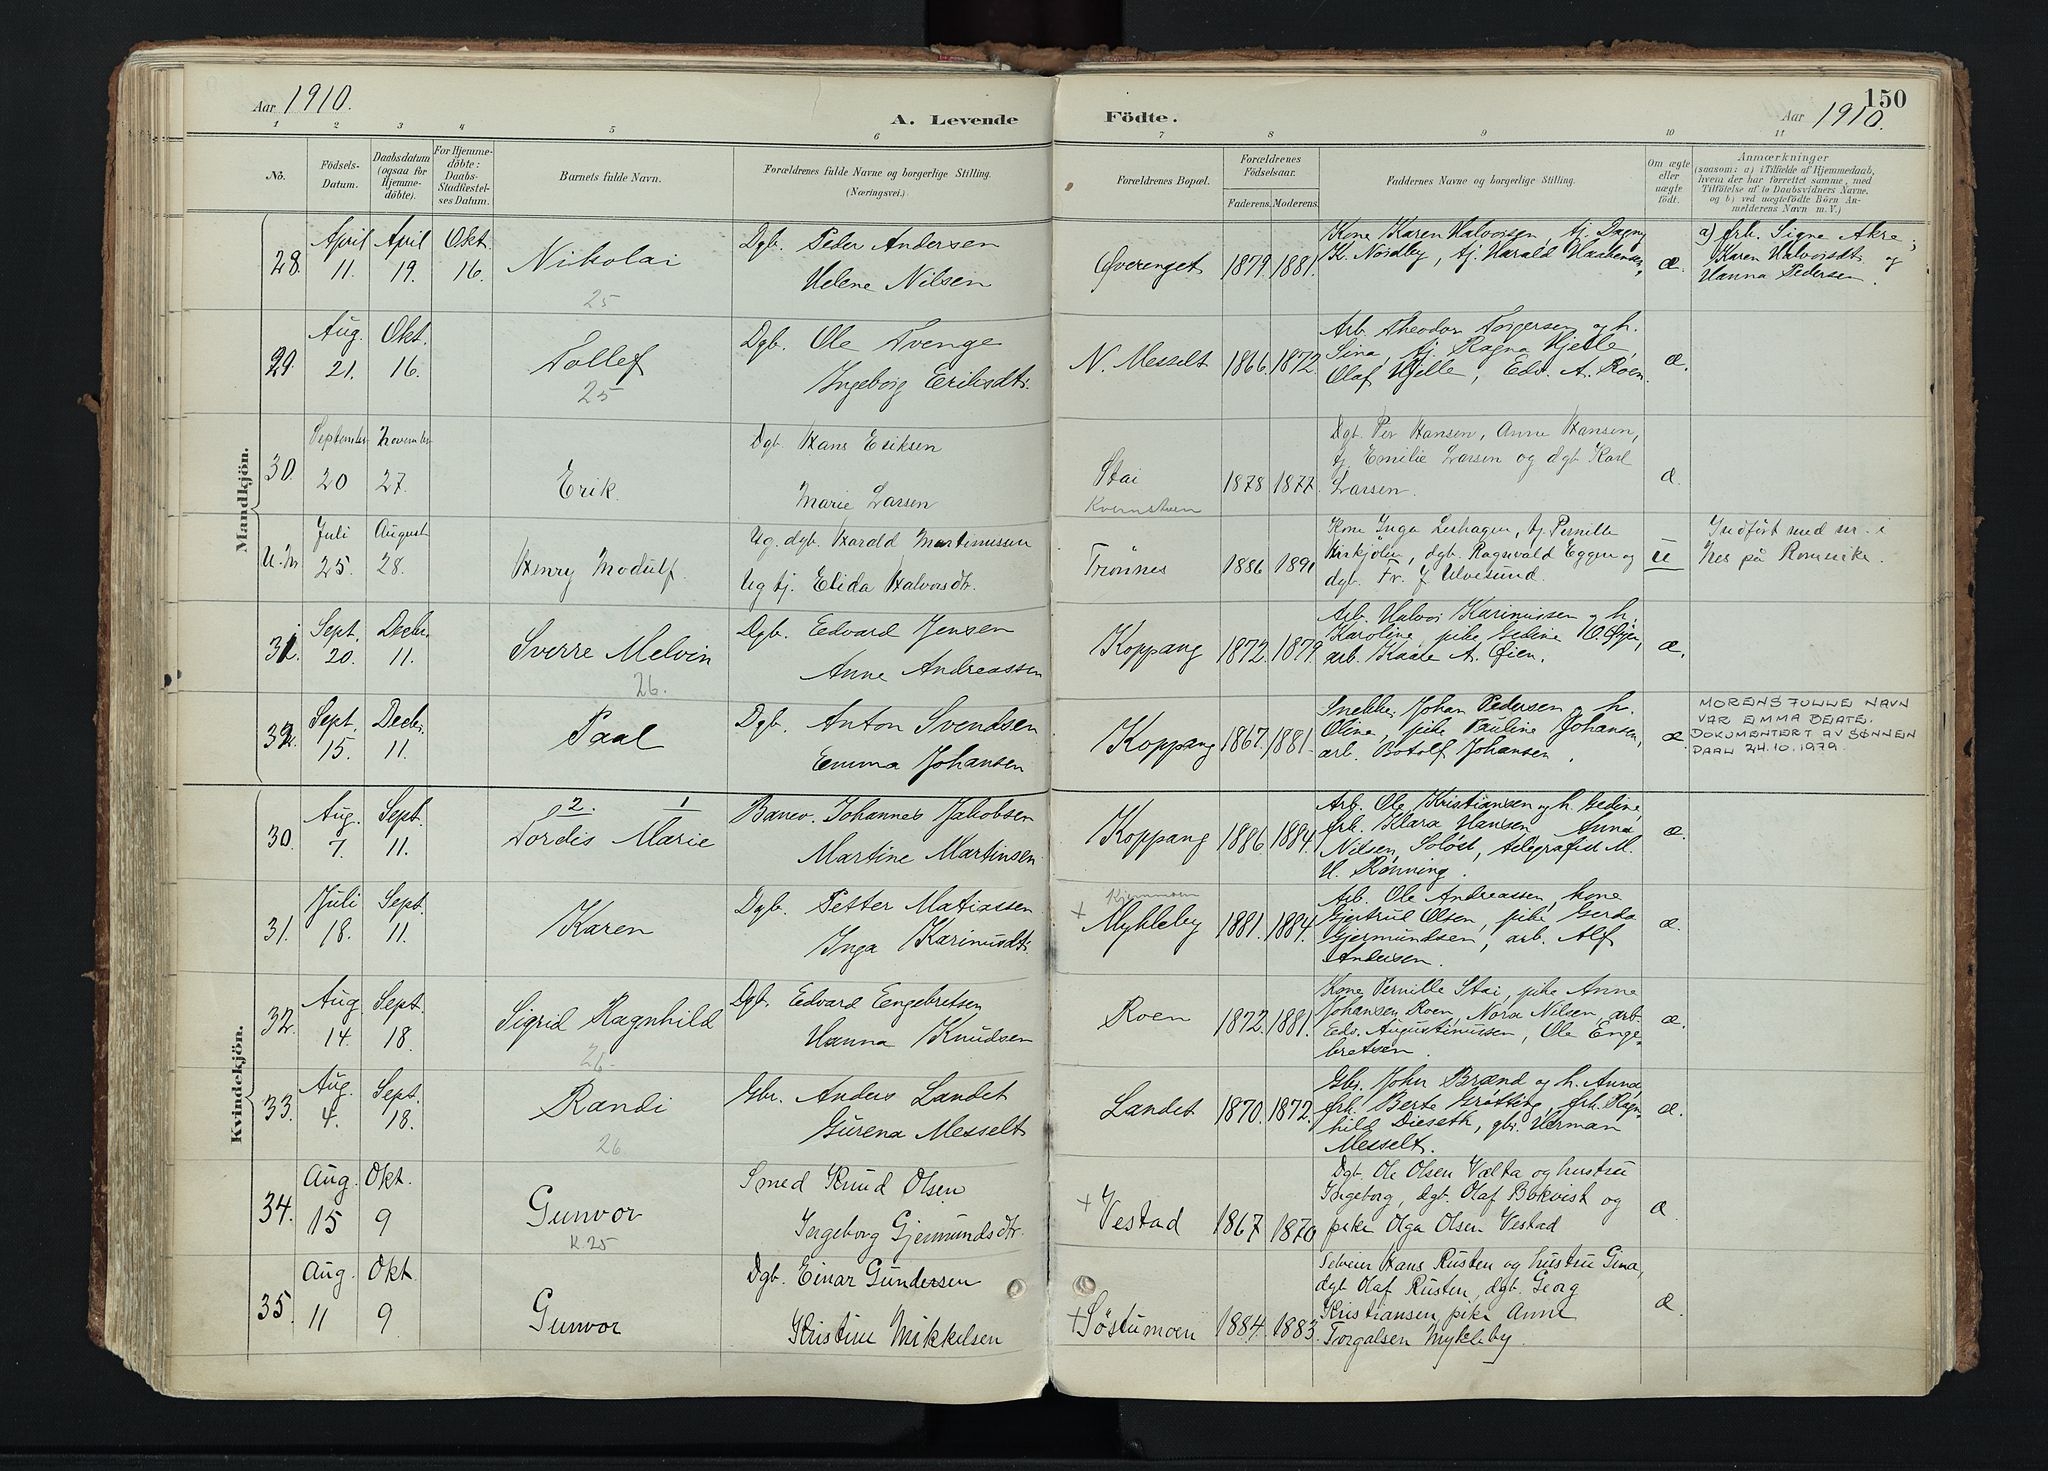 Aar 1910.
A. Levende
Födte.
150
Aar 1910.
1 2 3 4 5 6 7 8 9 10 11
No.
Födsels-
Datum.
Daabsdatum
(ogsaa for
Hjemme-
döbte).
For Hjemme-
döbte:
Daabs-
Stadfæstel-
ses Datum.
Barnets fulde Navn.
Forældrenes fulde Navne og borgerlige Stilling.
(Næringsvei.)
Forældrenes Bopæl.
Forældrenes
Födselsaar.
Faderens. Moderens.
Faddernes Navne og borgerlige Stilling.
Om ægte
eller
uægte
födt.
Anmærkninger
(saasom: a) i Tilfælde af Hjemmedaab,
hvem der har forrettet samme, med
Tilföielse af to Daabsvidners Navne,
og b) ved uægtefödte Börn An-
melderens Navn m. V.)
Mandkjön.
28. April 11. April 19. Okt. 16. Nikolai
25
Dgb. Peder Andersen
Helene Nilsen
Øverenget 1879. 1881.
Kone Karen Halvorsen, tj. Dagny
K. Nordby, tj. Harald
æ.
a) frk. Signe Akre,
Karen Halvorsdt. og
Hanna Pedersen.
29. Aug. 21. Okt. 16. Tollef
25
Dgb. Ole Tvenge
Ingeborg Eriksdtr.
N. Messelt 1866. 1872.
Arb. Theodor Torgersen og h.
Sina, tj. Ragna Hjelle,
Olaf Hjelle, Edv. A. Roen.
æ.
30. September 20 November 27. Erik.
Dgb. Hans Eriksen
Marie Larsen
Stai
Kvernstuen
1878 1877.
Dgb. Per Hansen, Anne Hansen,
tj. Emilie Larsen og dgb. Karl
Larsen.
æ.
U.Nr Juli 25. August 28. Henry Modulf.
Ug. dgb. Harald Martinussen
Ug tj. Elida Halvorsdtr.
Trønnes 1886 1891
Kone Inga Leshagen, tj. Pernille
Kirkjølen, dgb. Ragnvald Eggen og
dgb. Fr. J. Ulvesund.
u
Indført med nr. i
Nes på Romerike.
31. Sept. 20. Decbr. 11. Sverre Melvin
26.
Dgb. Edvard Jensen
Anne Andreassen
Koppang 1872. 1879
Arb. Halvor Karinussen og h.
Karoline, pike Gedine O. Øien,
arb. Kaare A. Øien.
æ.
32. Sept. 15. Decbr. 11. Paal
Dgb. Anton Svendsen
Emma Johansen
Koppang 1867. 1881.
Snekker Johan Pedersen og h.
Oline, pike Pauline Johansen,
arb. Botolf Johansen.
æ.
MORENS FULLE NAVN
VAR EMMA BEATE.
DOKUMENTERT AV SØNNEN
PAAL 24.10.1979.
Kvindekjön.
30. Aug. 7. Sept. 11. 2. 1
Tordis Marie
Banev. Johannes Jakobsen
Martine Martinsen
Koppang 1886. 1884.
Arb. Ole Kristiansen og h. Gedine,
frk. Klara Hansen, Anna
Nilsen, Soløst, telegrafist M.
H. Rønning.
æ.
31. Juli 18. Sept. 11. Karen
Dgb. Petter Matiassen
Inga Karinusdtr.
Kjemmoen
+ Mykleby 1881. 1884.
Arb. Ole Andreassen, kone
Gjertrud Olsen, pike Gerda
Gjermundsen, arb. Alf
Andersen.
æ.
32. Aug 14. Sept. 18. Sigrid Ragnhild
26.
Dgb. Edvard Engebretsen
Hanna Knudsen
Roen 1872. 1881.
Kone Pernille Stai, pike Anne
Johansen Roen, Nora Nilsen, arb.
Edv. Augustinussen, Ole Enge-
bretsen.
æ.
33. Aug. 4. Sept. 18. Randi
26
Gbr. Anders Landet
Gurena Messelt
Landet 1870. 1872.
Gbr. John Brænd og h. Anna,
frk. Berte Grøtting, frk. Ragn-
hild Dieseth, gbr. Herman
Messelt.
æ.
34. Aug. 15 Okt. 9 Gunvor
K.25
Smed Knud Olsen
Ingeborg Gjermundsdtr.
+ Vestad 1867 1870
Dgb. Ole Olsen Vælta og hustru
Ingeborg, dgb. Olaf Bokvist og
pike Olga Olsen Vestad
æ.
35. Aug. 11 Okt 9 Gunvor
Dgb. Einar Gundersen
Kristine Mikkelsen
+ Søstumoen 1884. 1883.
Selveier Hans Rusten og hustru Gina,
dgb. Olaf Rusten, dgb. Georg
Kristiansen, pike Anne
Torgalsen Mykleby.
æ.